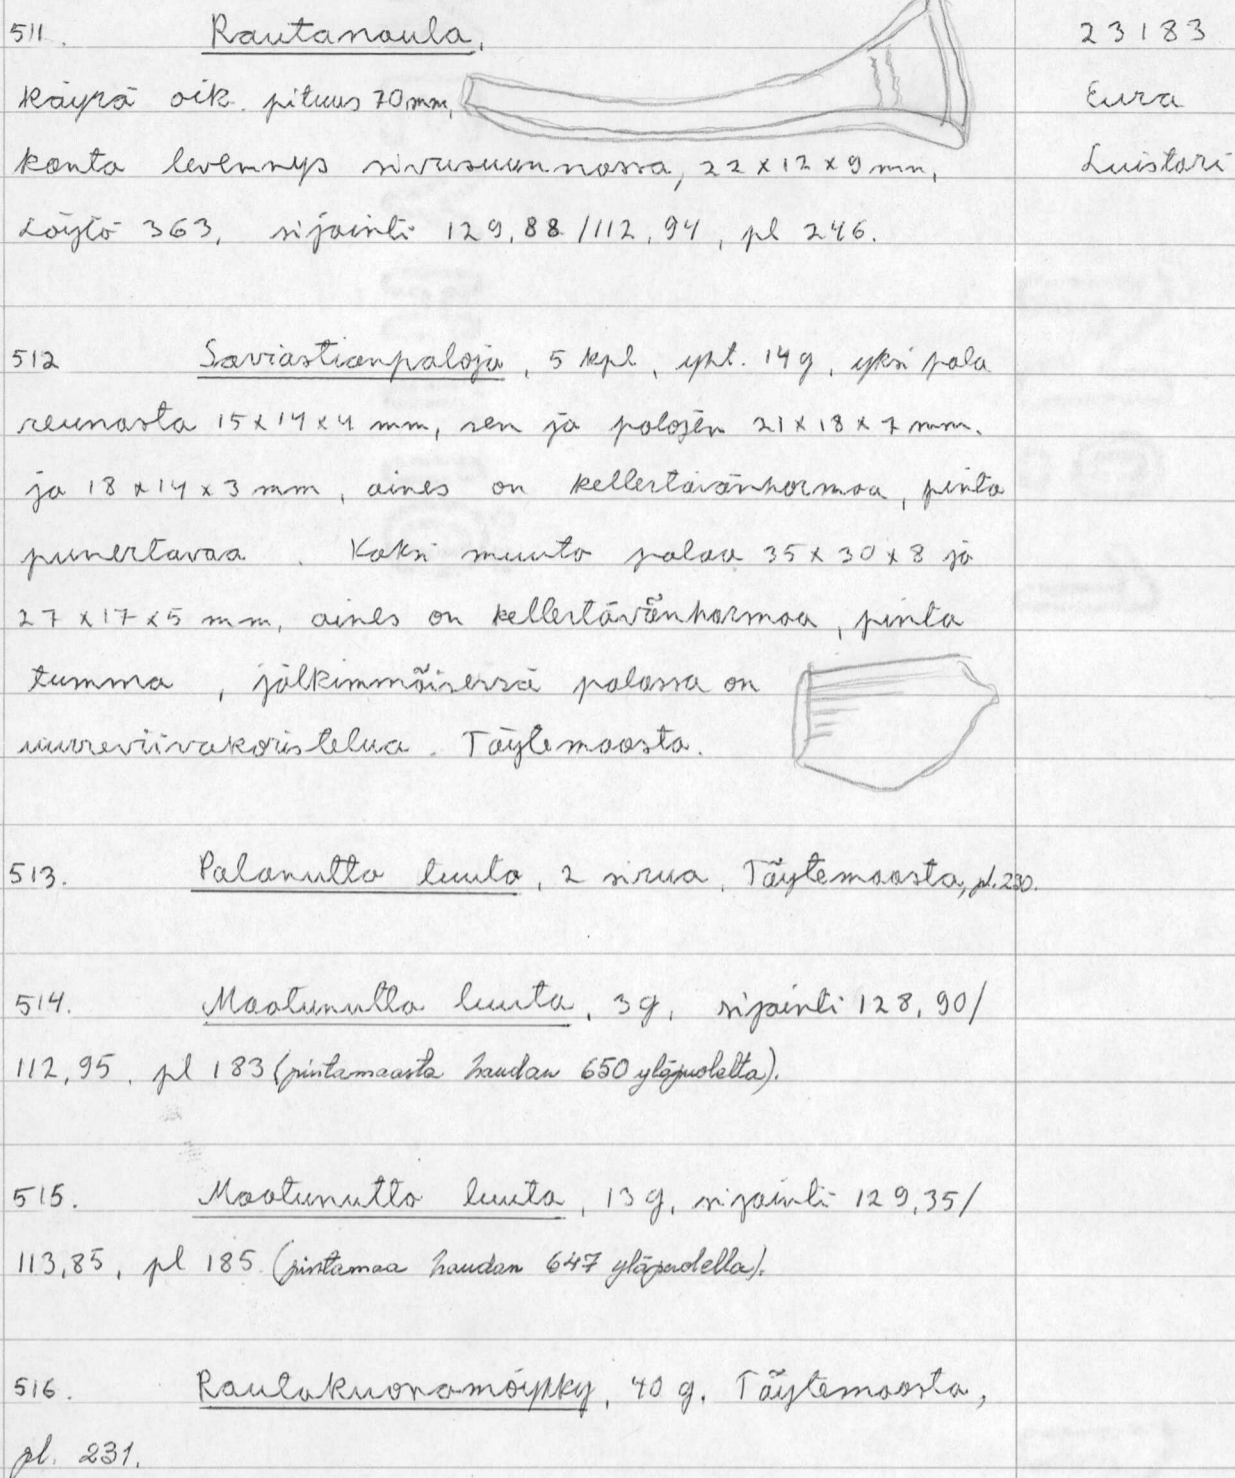 511. Rautanaula, 23183
käyrä oik. pituus 70 mm, Eura
kanta levennys sivusuunnassa, 22 x 12 x 9 mm, Luistari
Löytö 363, sijainti 129,88/112,94, pl 246.
512 Saviastianpaloja, 5 kpl, yht. 14 g, yksi pala
reunasta 15 x 14 x 4 mm, sen ja palojen 21 x 18 x 7 mm.
ja 18 x 14 x 3 mm, aines on kellertävänharmaa, pinta
punertavaa. Kaksi muuta palaa 35 x 30 x 8 ja
27 x 17 x 5 mm, aines on kellertävänharmaa, pinta
tumma, jälkimmäisessä palassa on
uurreviivakoristelua. Täytemaasta.
513. Palanutta luuta, 2 sirua, Täytemaasta, pl. 230.
514. Maatunutta luuta, 3 g, sijainti 128,90/
112,95, pl 183 (pintamaasta haudan 650 yläpuolelta).
515. Maatunutta luuta, 13 g, sijainti 129,35/
113,85, pl 185 (pintamaa haudan 647 yläpuolella).
516. Rautakuonamöykky, 40 g. Täytemaasta,
pl. 231.